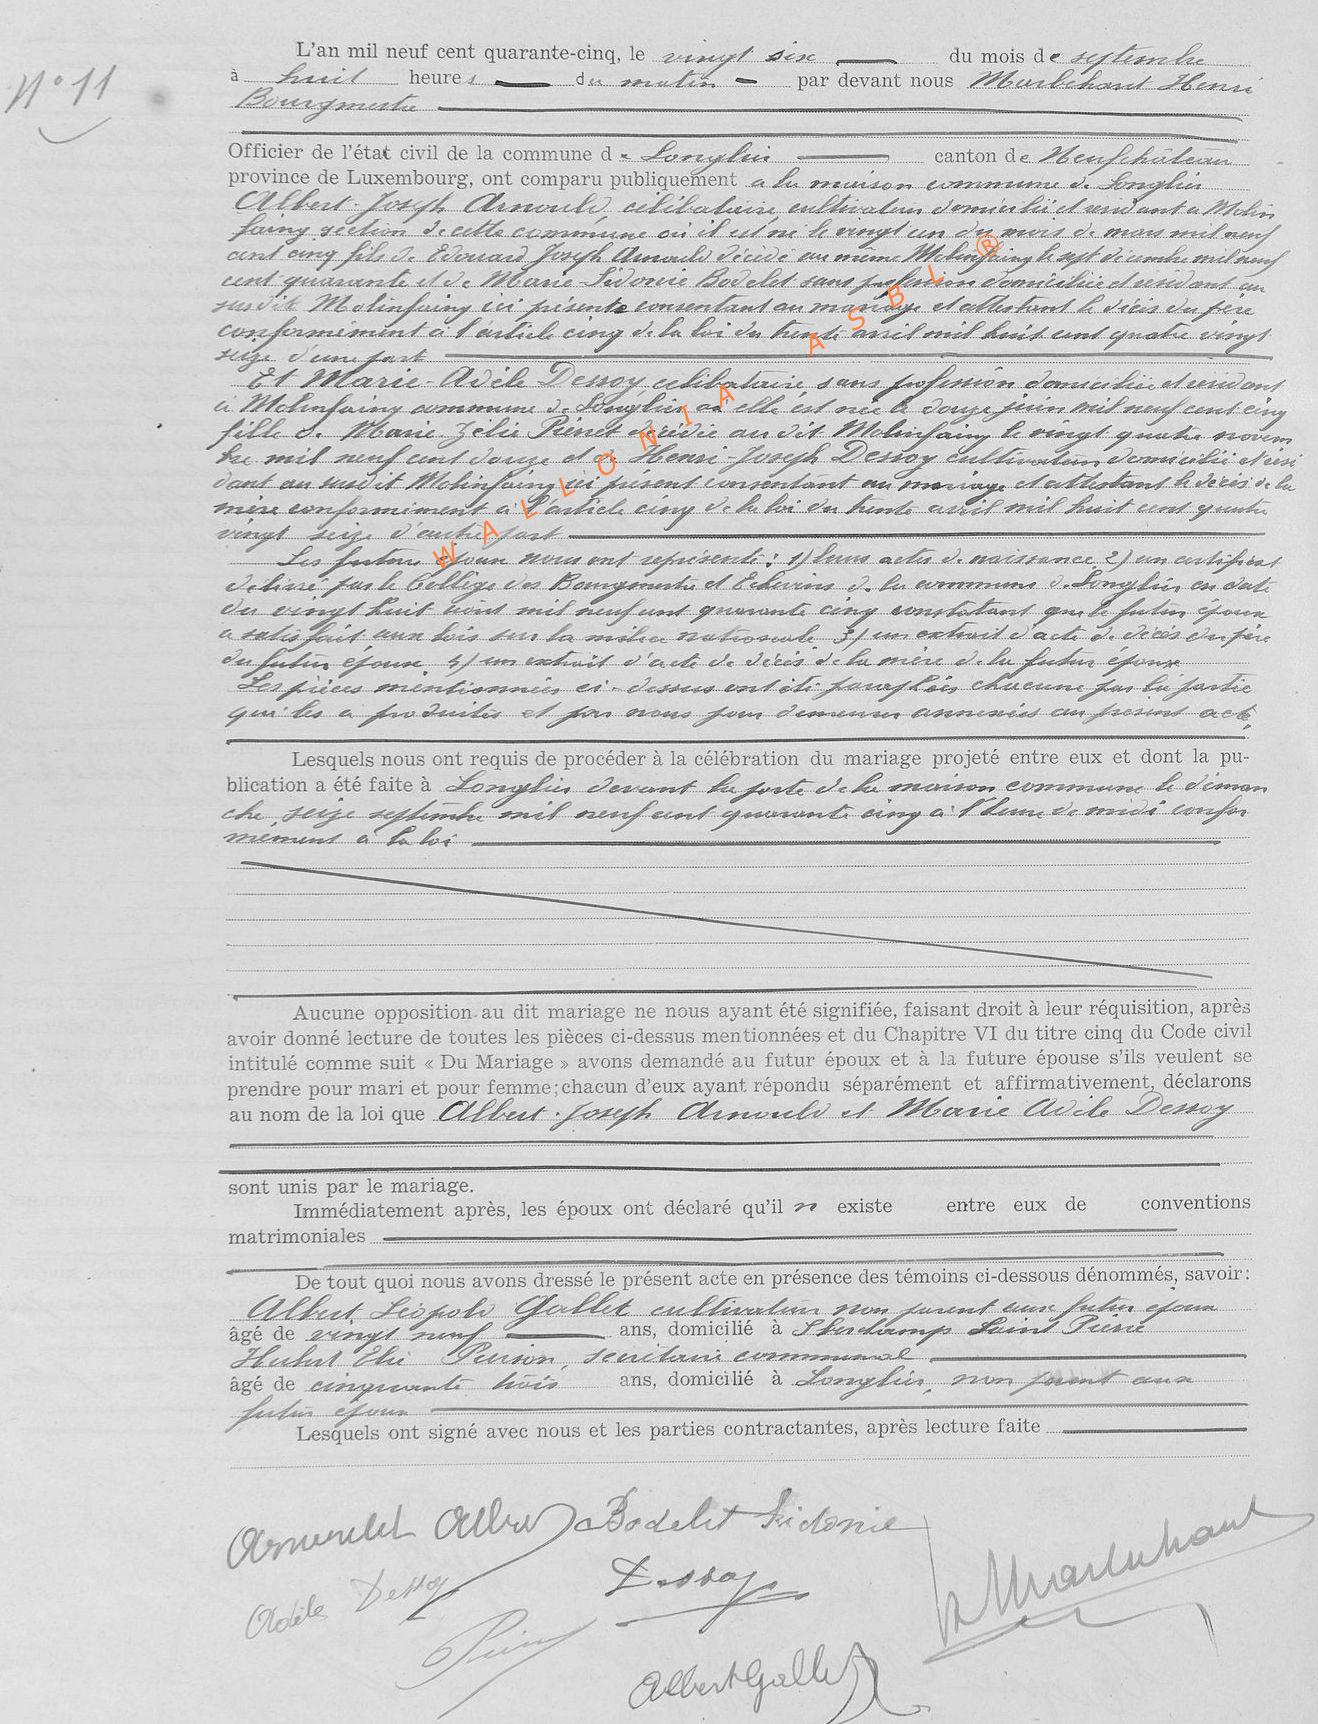 N° 11
L'an mil neuf cent quarante-cinq, le vingt six du mois de septembre
à huit heures du matin par devant nous Marlehant Henri
Bourgmestre
Officier de l'état civil de la commune de Longlier canton de Neufchâteau
province de Luxembourg, ont comparu publiquement a la maison commune de Longlier
Albert-Joseph Arnould, célibataire, cultivateur domicilié et résidant a Molin
faing section de cette commune où il est né le vingt un du mois de mars mil neuf
cent cinq fils de Edouard Joseph Arnould décédé au même Molinfaing le sept décembre mil neuf
cent quarante et de Marie-Sidonie Bodelet sans profession domiciliée et résidant au
susdit Molinfaing ici présente consentant au mariage et attestant le décès du père
conformément à l'article cinq de la loi du trente avril mil huit cent quatre vingt
seize d'une part
Et Marie-Adèle Dessoy, célibataire, sans profession domiciliée et résidant
à Molinfaing commune de Longlier où elle est née le douze juin mil neuf cent cinq
fille de Marie Zélie Pierret décédée au dit Molinfaing le vingt quatre novem
bre mil neuf cent douze et de Henri-Joseph Dessoy cultivateur domicilié et rési
dant au susdit Molinfaing ici présent consentant au mariage et attestant le décès de la
mère conformément à l'article cinq de la loi du trente avril mil huit cent quatre
vingt seize d'autre part
Les futurs époux nous ont représenté: 1) leurs actes de naissance 2) un certificat
délivré par le Collège des Bourgmestre et Echevins de la commune de Longlier en date
du vingt huit août mil neuf cent quarante cinq constatant que le futur époux
a satisfait aux lois sur la milice nationale 3) un extrait d'acte de décès du père
du futur époux 4) un extrait d'acte de décès de la mère de la futur épouse
Les pièces mentionnées ci-dessus ont été paraphées chacune par la partie
qui les a produites et par nous pour demeurer annexées au présent acte.
Lesquels nous ont requis de procéder à la célébration du mariage projeté entre eux et dont la pu-
blication a été faite à Longlier devant la porte de la maison commune le diman
che, seize septembre mil neuf cent quarante cinq à l'heure de midi confor
mément à la loi
Aucune opposition au dit mariage ne nous ayant été signifiée, faisant droit à leur réquisition, après
avoir donné lecture de toutes les pièces ci-dessus mentionnées et du Chapitre VI du titre cinq du Code civil
intitulé comme suit « Du Mariage » avons demandé au futur époux et à la future épouse s'ils veulent se
prendre pour mari et pour femme; chacun d'eux ayant répondu séparément et affirmativement, déclarons
au nom de la loi que Albert-Joseph Arnould et Marie Adèle Dessoy
sont unis par le mariage.
Immédiatement après, les époux ont déclaré qu'il n' existe entre eux de conventions
matrimoniales
De tout quoi nous avons dressé le présent acte en présence des témoins ci-dessous dénommés, savoir:
Albert, Léopold Gallet cultivateur non parent aux futur époux
âgé de vingt neuf ans, domicilié à Sberchamps Saint Pierre
Hubert Elie Pierson, secrétaire communal
âgé de cinquante trois ans, domicilié à Longlier, non parent aux
futur époux
Lesquels ont signé avec nous et les parties contractantes, après lecture faite
Arnould Albert Bodelet Sidonie
Adèle Dessoy Dessoy
Albert Gallet
WALLONIA ASBL ®